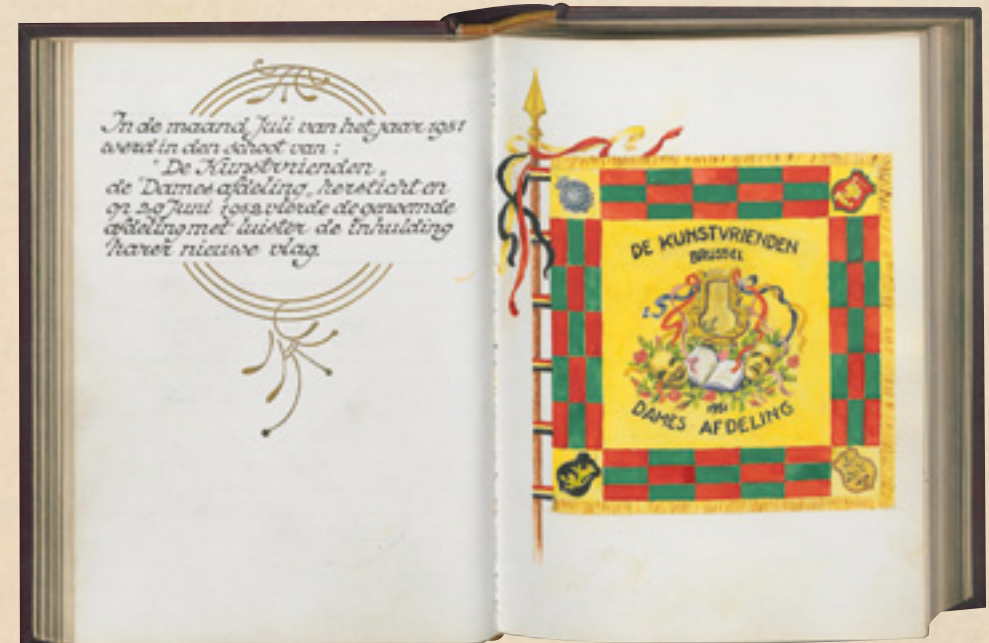 In de maand Juli van het jaar 1951
werd in den schoot van :
"De Kunstvrienden„
de Dames afdeling, hersticht en
op 29 Juni 1952 vierde de genoemde
afdeling met luister de Inhulding
harer nieuwe vlag.
DE KUNSTVRIENDEN
BRUSSEL
DAMES AFDELING